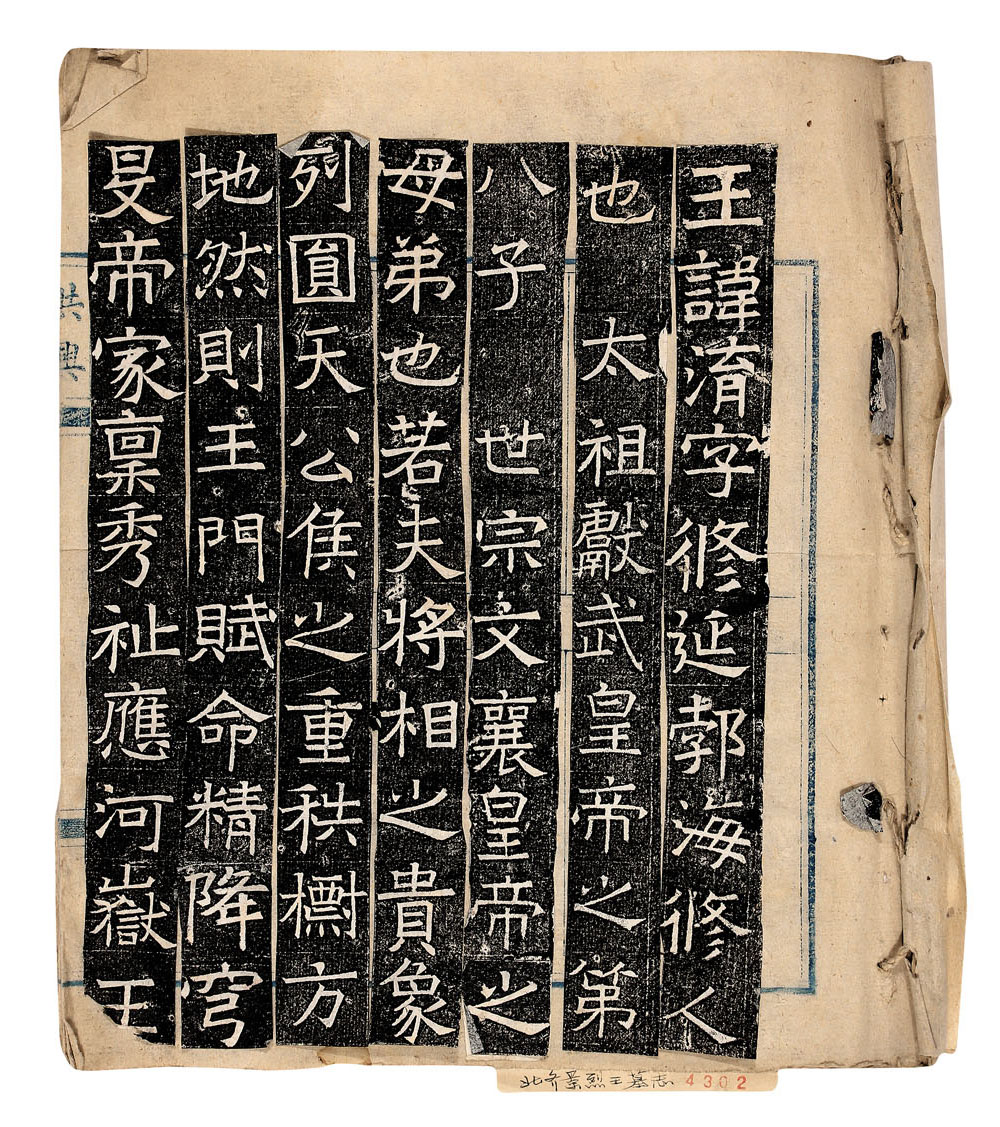 王諱淯字修延郣海修人
也太祖獻武皇帝之第
八子世宗文襄皇帝之
母弟也若夫將相之貴象
列圓天公侯之重秩檦方
地然則王門賦命精降穹
旻帝家稟秀祉應河嶽王
北齐景烈王墓志 4302